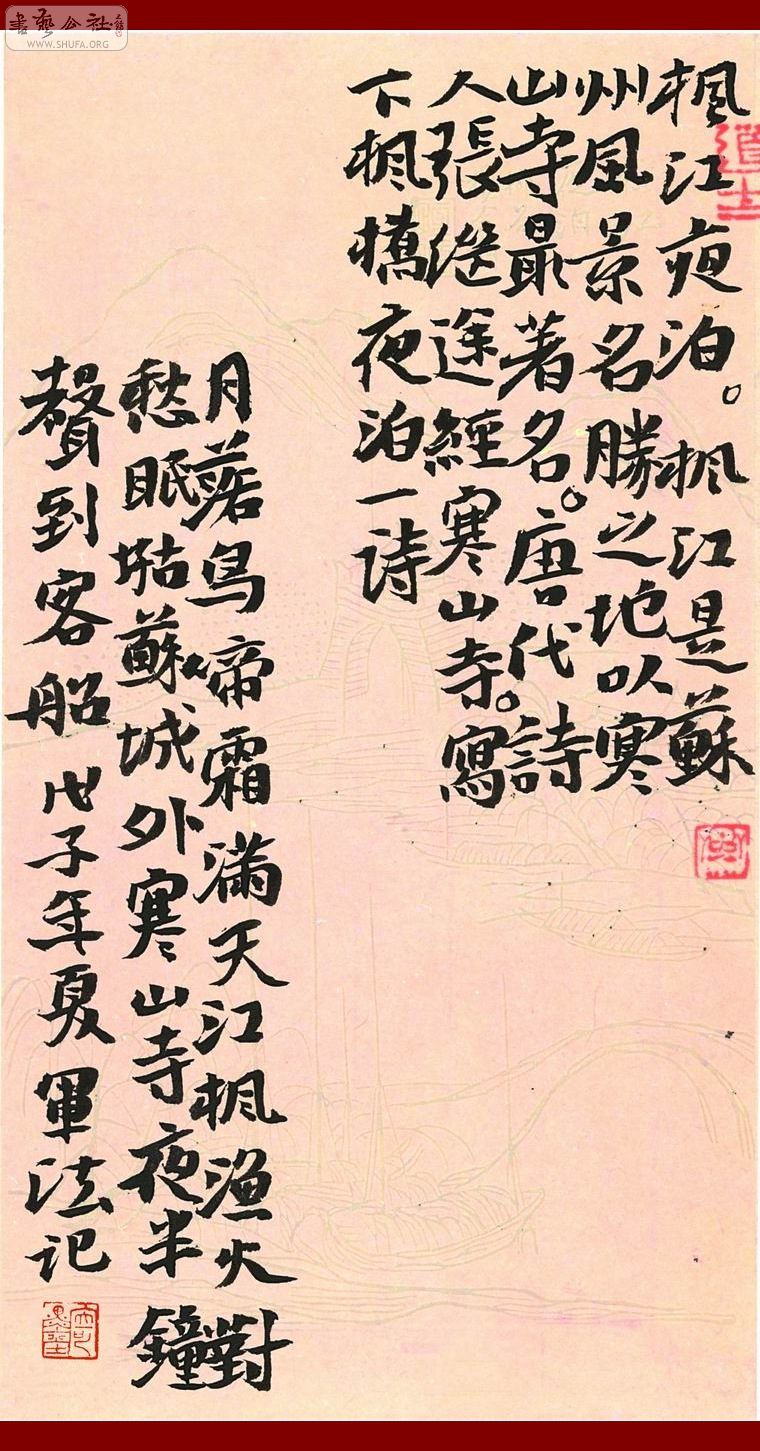 書藝公社
WWW.SHUFA.ORG
枫江夜泊。枫江是蘇
州風景名勝之地以寒
山寺最著名。唐代詩
人張继途經寒山寺。寫
下枫橋夜泊一诗
月落鸟啼霜滿天江枫渔火對
愁眠姑蘇城外寒山寺夜半鐘
聲到客船 戊子年夏 軍法记
道士